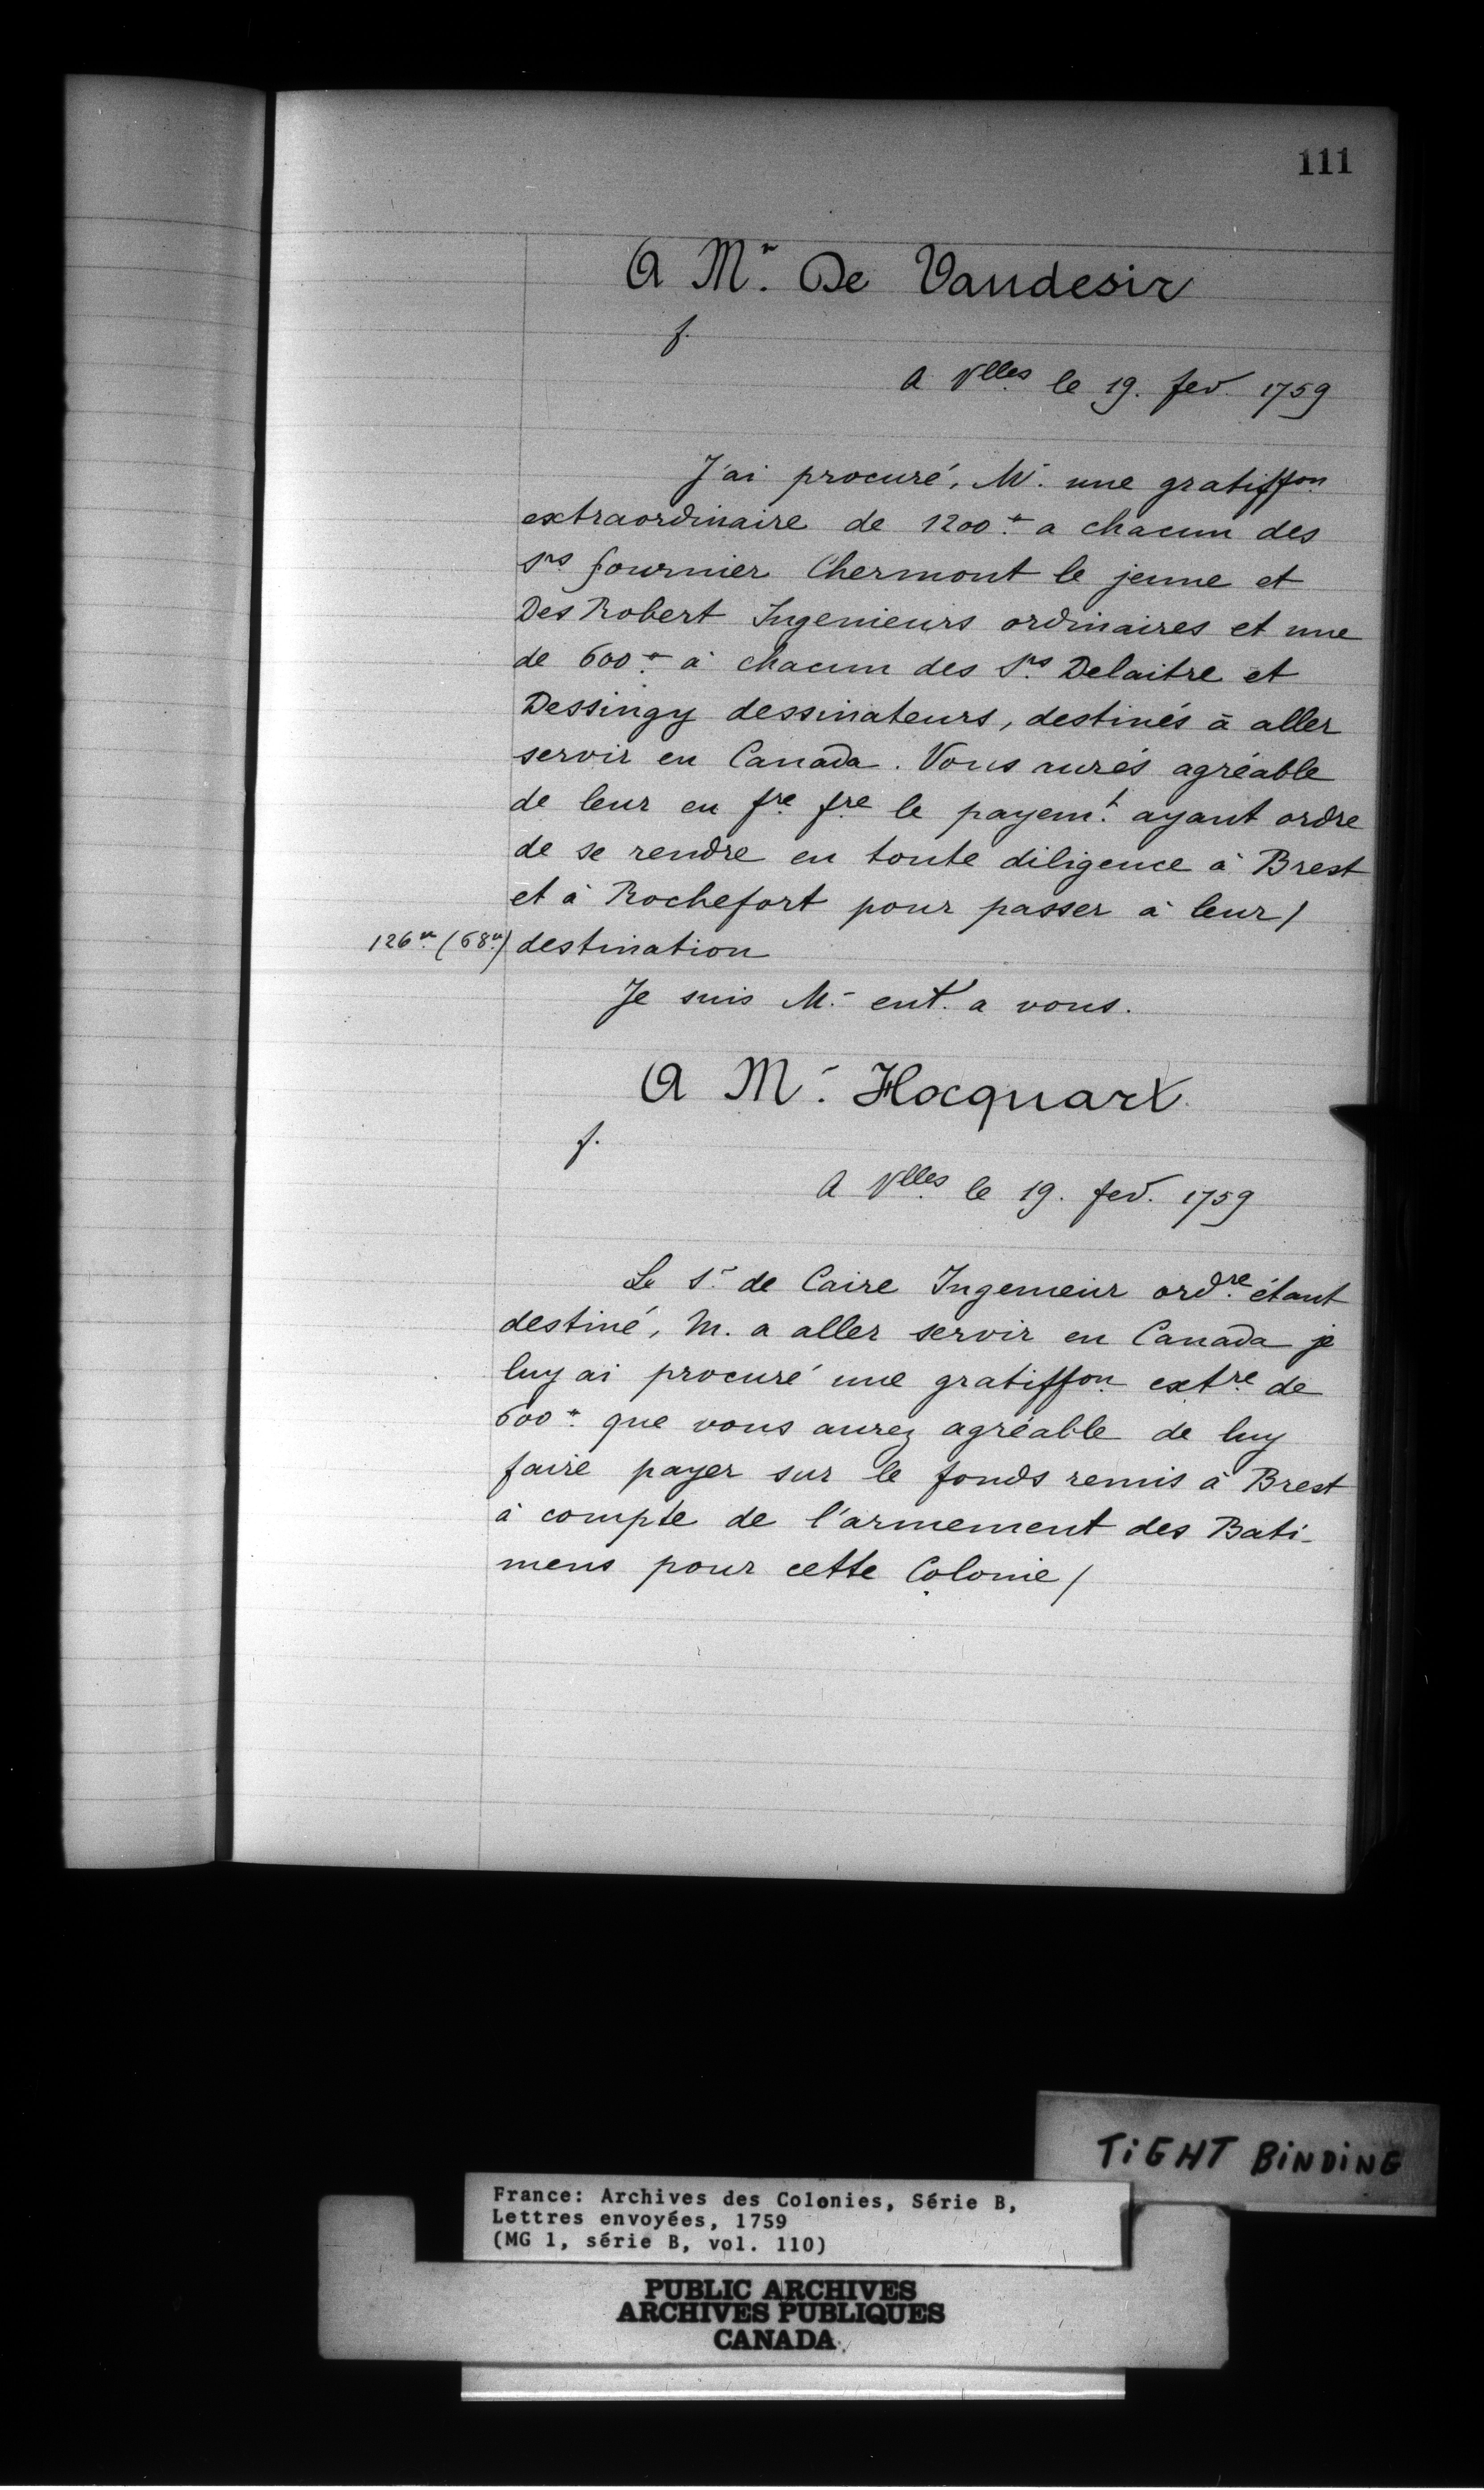 111
A Mr. De Vaudesir
f.
A Vlles le 19. fev. 1759
J'ai procuré, Mr. une gratiffon
extraordinaire de 1200 ₶ a chacun des
Srs fournier Chermont le jeune et
Des Robert Ingenieurs ordinaires et une
de 600 ₶ à chacun des Srs Delaitre et
Dessingy dessinateurs, destinés à aller
servir en Canada. Vous aurés agréable
de leur en fre fre le payemt. ayant ordre
de se rendre en toute diligence à Brest
et à Rochefort pour passer à leur /
126 vo. (68 vo.) destination
Je suis Mr. ent. a vous.
A Mr. Hocquart
f.
A Vlles le 19. fev. 1759
Le Sr. de Caire Ingenieur ordre. étant
destiné, M. a aller servir en Canada je
luy ai procuré une gratiffon extre. de
600 ₶ que vous aurez agréable de luy
faire payer sur le fonds remis à Brest
à compte de l'armement des Bati-
mens pour cette Colonie /
TiGHT BiNDiNG
France: Archives des Colonies, Série B,
Lettres envoyées, 1759
(MG 1, série B, vol. 110)
PUBLIC ARCHIVES
ARCHIVES PUBLIQUES
CANADA